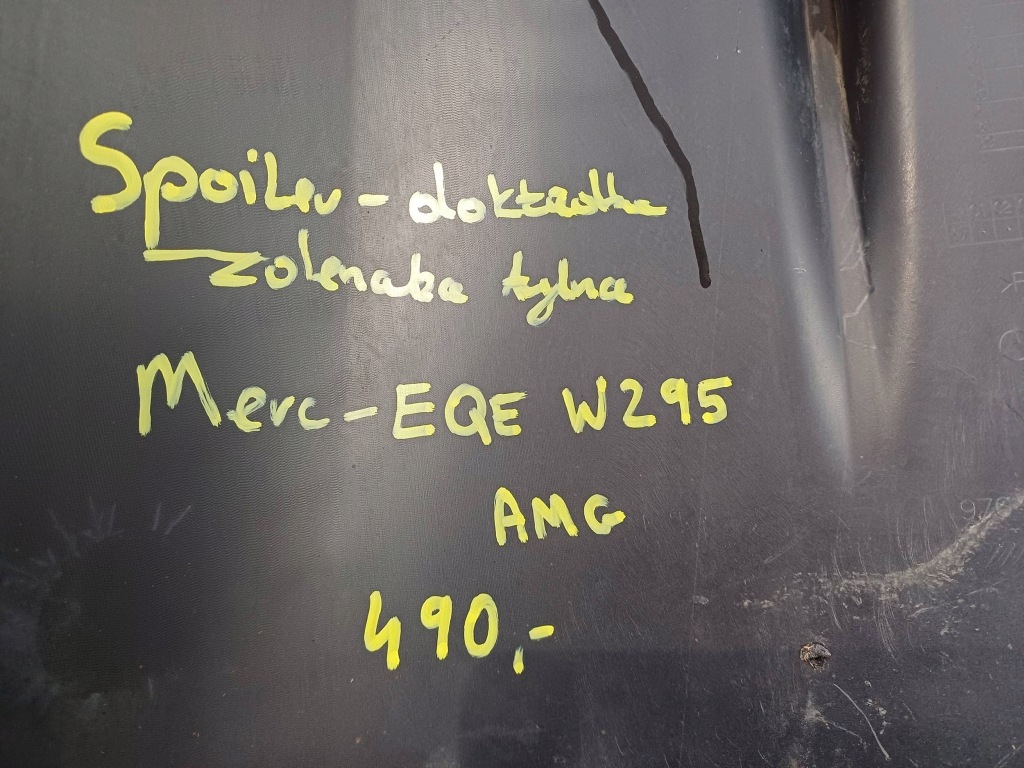 Spoiler - dokładka
zderzaka tylna
Merc - EQE W295
AMG
490,-